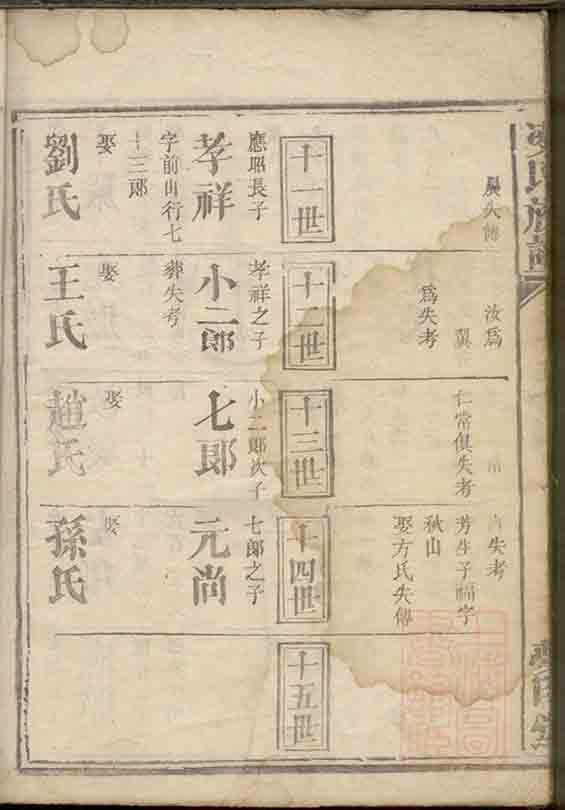 氏族譜
失傳
汝爲
翼
爲失考
仁常俱失考
失考
芳生子福字
秋山
娶方氏失傳
十一世
應昭長子
孝祥
字前山行七
十三郎
娶
劉氏
十二世
孝祥之子
小二郎
葬失考
娶
王氏
十三世
小二郎次子
七郎
娶
趙氏
十四世
七郎之子
元尚
娶
孫氏
十五世